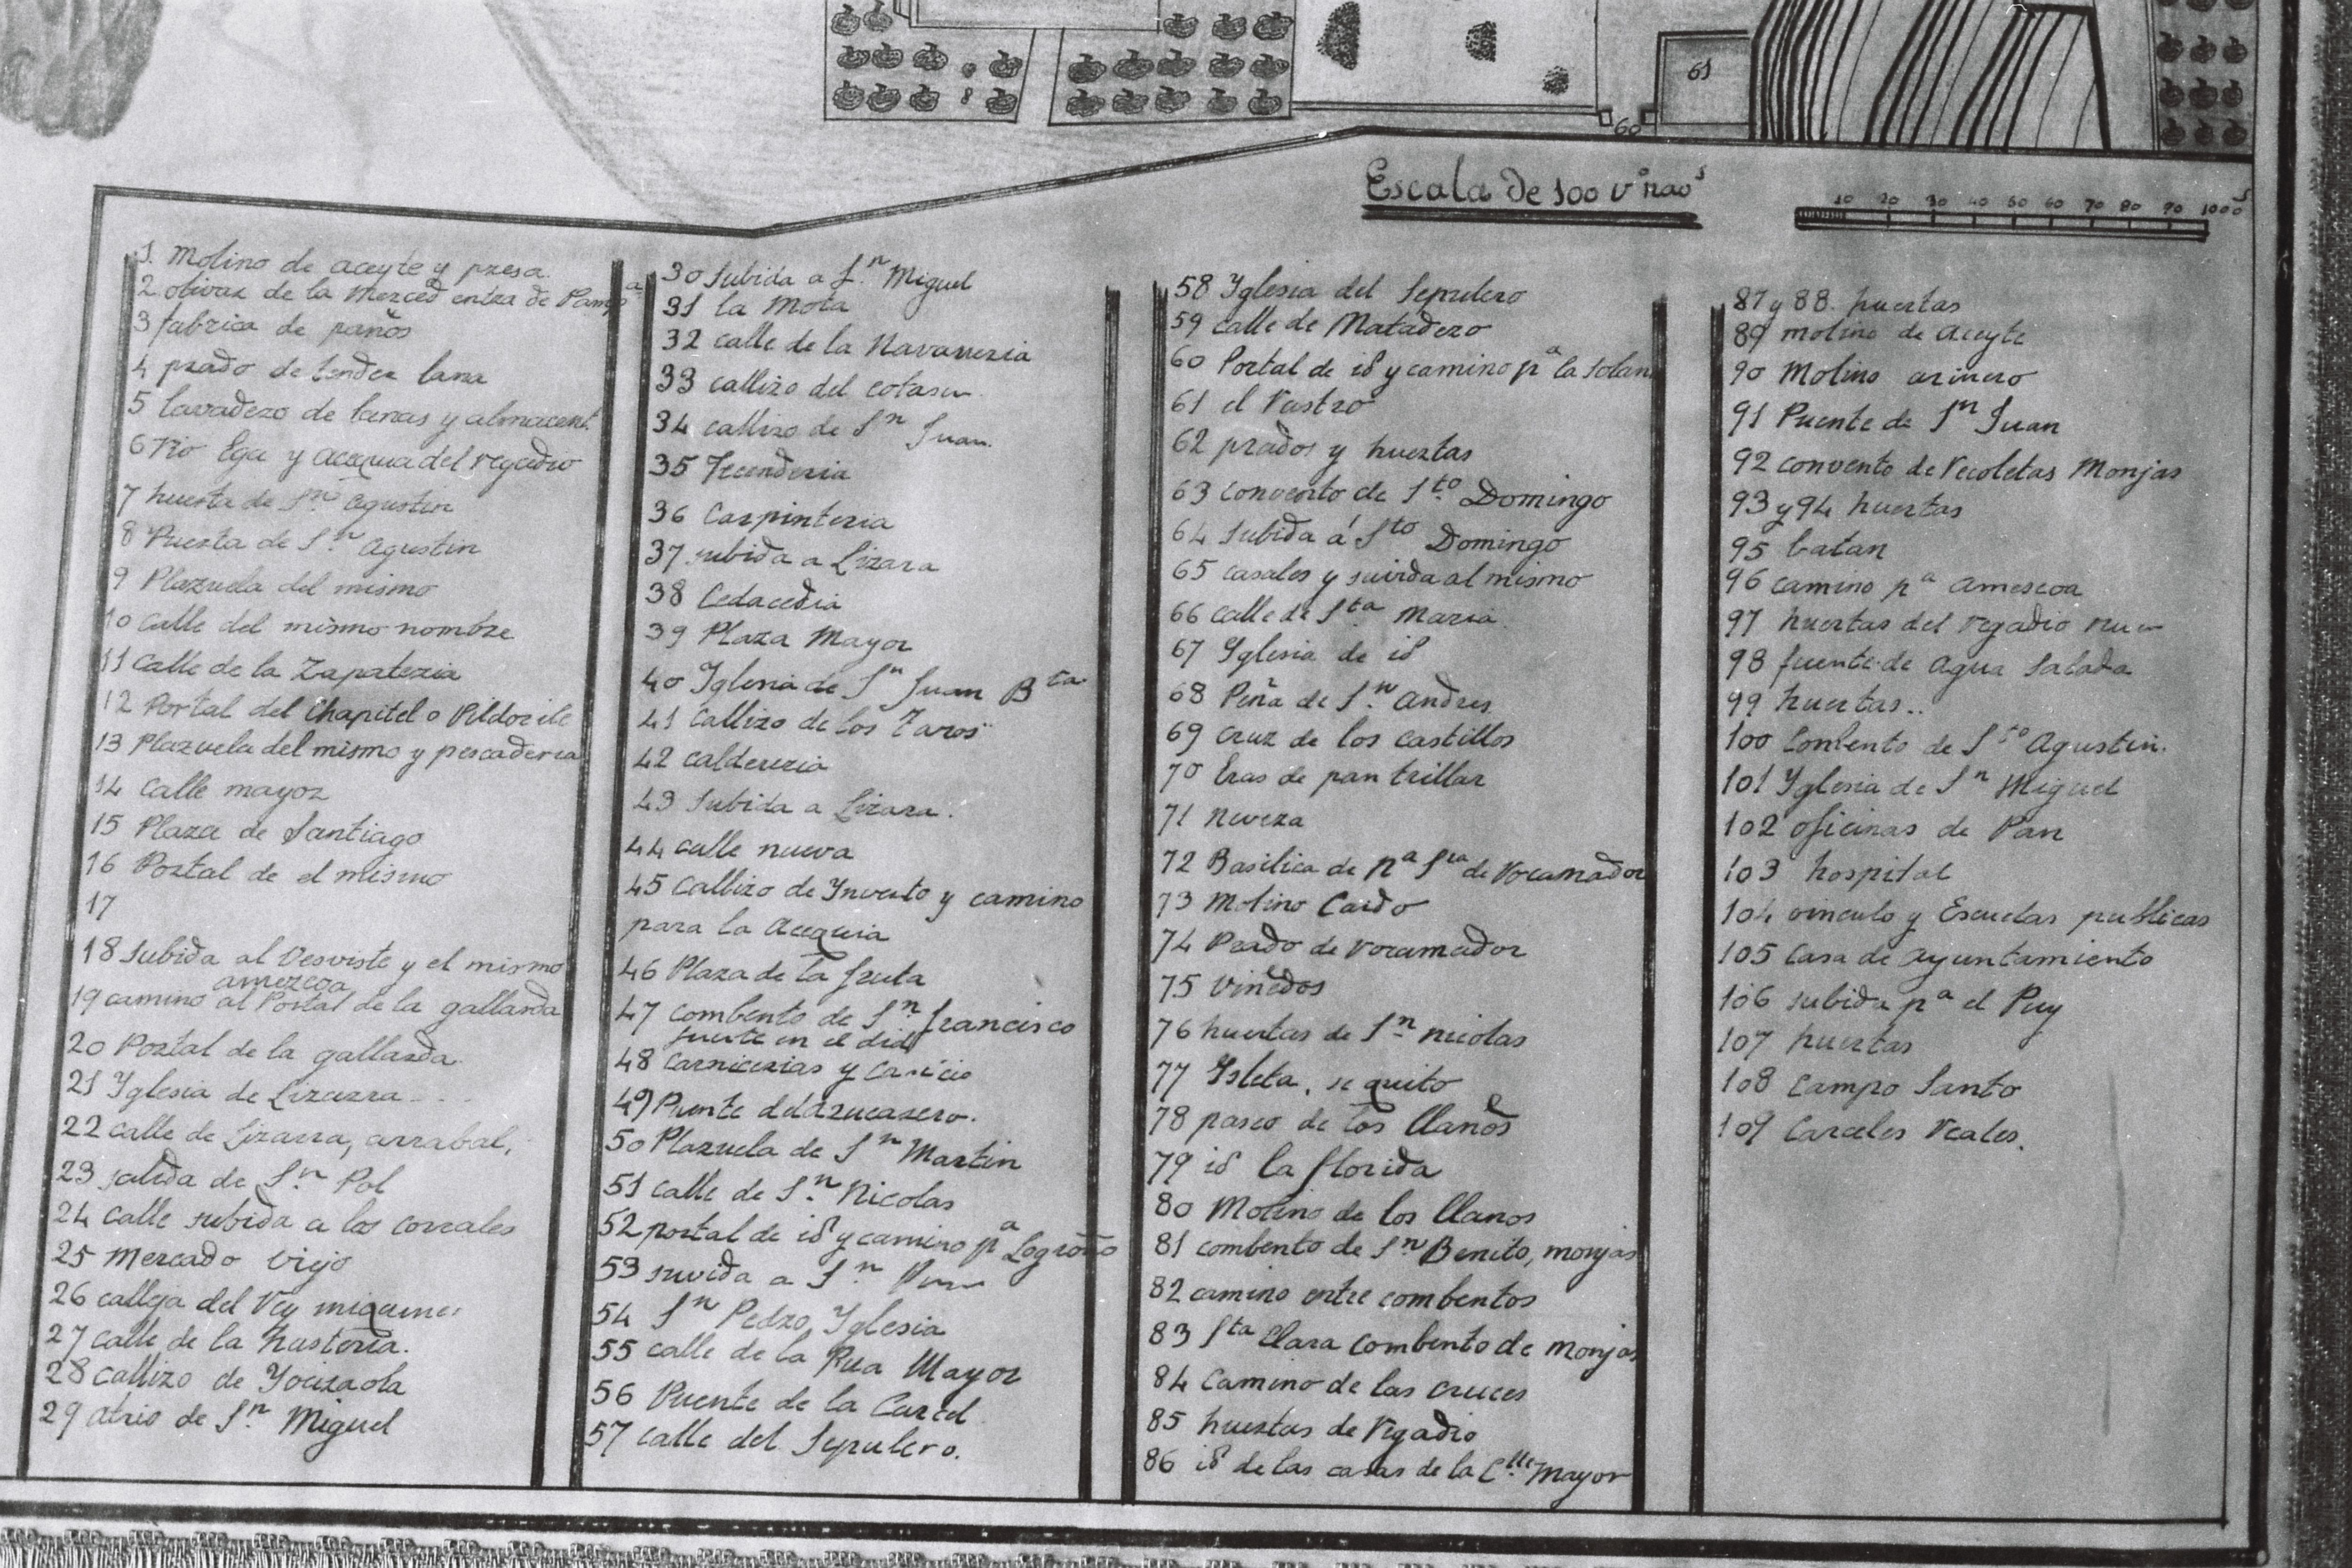 61
60
Escala de 100 v
10 20 30 40 50 60 70 80 90 100
1. Molino de aceyte y presa
2 olivar de la Merced entra de
3 fabrica de paños
4 prado de tender lana
5 lavadero de lanas y
6 rio Ega y acequia del regadio
7 huerta de Sn. Agustin
8 Puerta de Sn. Agustin
9 Plazuela del mismo
10 Calle del mismo nombre
11 Calle de la Zapateria
12 Portal del Chapitel o
13 Plazuela del mismo y pescaderia
14 Calle mayor
15 Plaza de Santiago
16 Portal de el mismo
17
18 Subida al y el mismo
amezcoa
19 camino al Portal de la gallarda
20 Portal de la gallarda
21 Yglesia de Lizarra
22 calle de Lizarra, arrabal,
23 salida de Sn. Pol
24 calle subida a los corrales
25 Mercado viejo
26 calleja del Rey
27 calle de la
28 callizo de
29 atrio de Sn. Miguel
30 Subida a Sn. Miguel
31 la Mota
32 calle de la Navarreria
33 callizo del
34 callizo de Sn Juan.
35 Tecenderia
36 Carpinteria
37 subida a Lizara
38
39 Plaza Mayor
40 Yglesia de Sn Juan Bta
41 Callizo de los
42 caldereria
43 Subida a Lizara.
44 calle nueva
45 Callizo de Ynvierto y camino
para la Acequia
46 Plaza de la fruta
47 combento de Sn. francisco
fuerte en el
48 carnicerias y
49 Puente del azucarero.
50 Plazuela de Sn Martin
51 calle de Sn. Nicolas
52 portal de id y camino pa Logroño
53 suvida a Sn.
54 Sn Pedro Yglesia
55 calle de la Rua Mayor
56 Puente de la Carcel
57 calle del Sepulcro.
58 Yglesia del Sepulcro
59 calle de Matadero
60 Portal de id y camino pa la Solan
61 el Rastro
62 prados y huertas
63 convento de Sto. Domingo
64 Subida á Sto Domingo
65 casales y suvida al mismo
66 calle de Sta Maria
67 Yglesia de id
68 Peña de Sn. Andres
69 cruz de los castillos
70 Eras de pan trillar
71 nevera
72 Basilica de Na Sra de Rocamador
73 Molino Caido
74 Prado de rocamador
75 viñedos
76 huertas de Sn nicolas
77 Ysleta, se quito
78 paseo de los llanos
79 id la florida
80 Molino de los llanos
81 combento de Sn. Benito, monjas
82 camino entre combentos
83 Sta Clara combento de monjas
84 Camino de las cruces
85 huertas de Regadio
86 id de las casas de la Clle. Mayor
87 y 88. puertas
89 molino de aceyte
90 Molino arinero
91 Puente de Sn Juan
92 convento de Recoletas Monjas
93 y 94 huertas
95 batan
96 camino pa amescoa
97 huertas del regadio
98 fuente de agua Salada
99 huertas..
100 Combento de Sto Agustin.
101 Yglesia de Sn Miguel
102 oficinas de Pan
103 hospital
104 vinculo y Escuelas publicas
105 Casa de ayuntamiento
106 subida pa el Puy
107 huertas
108 Campo Santo
109 Carceles Reales.